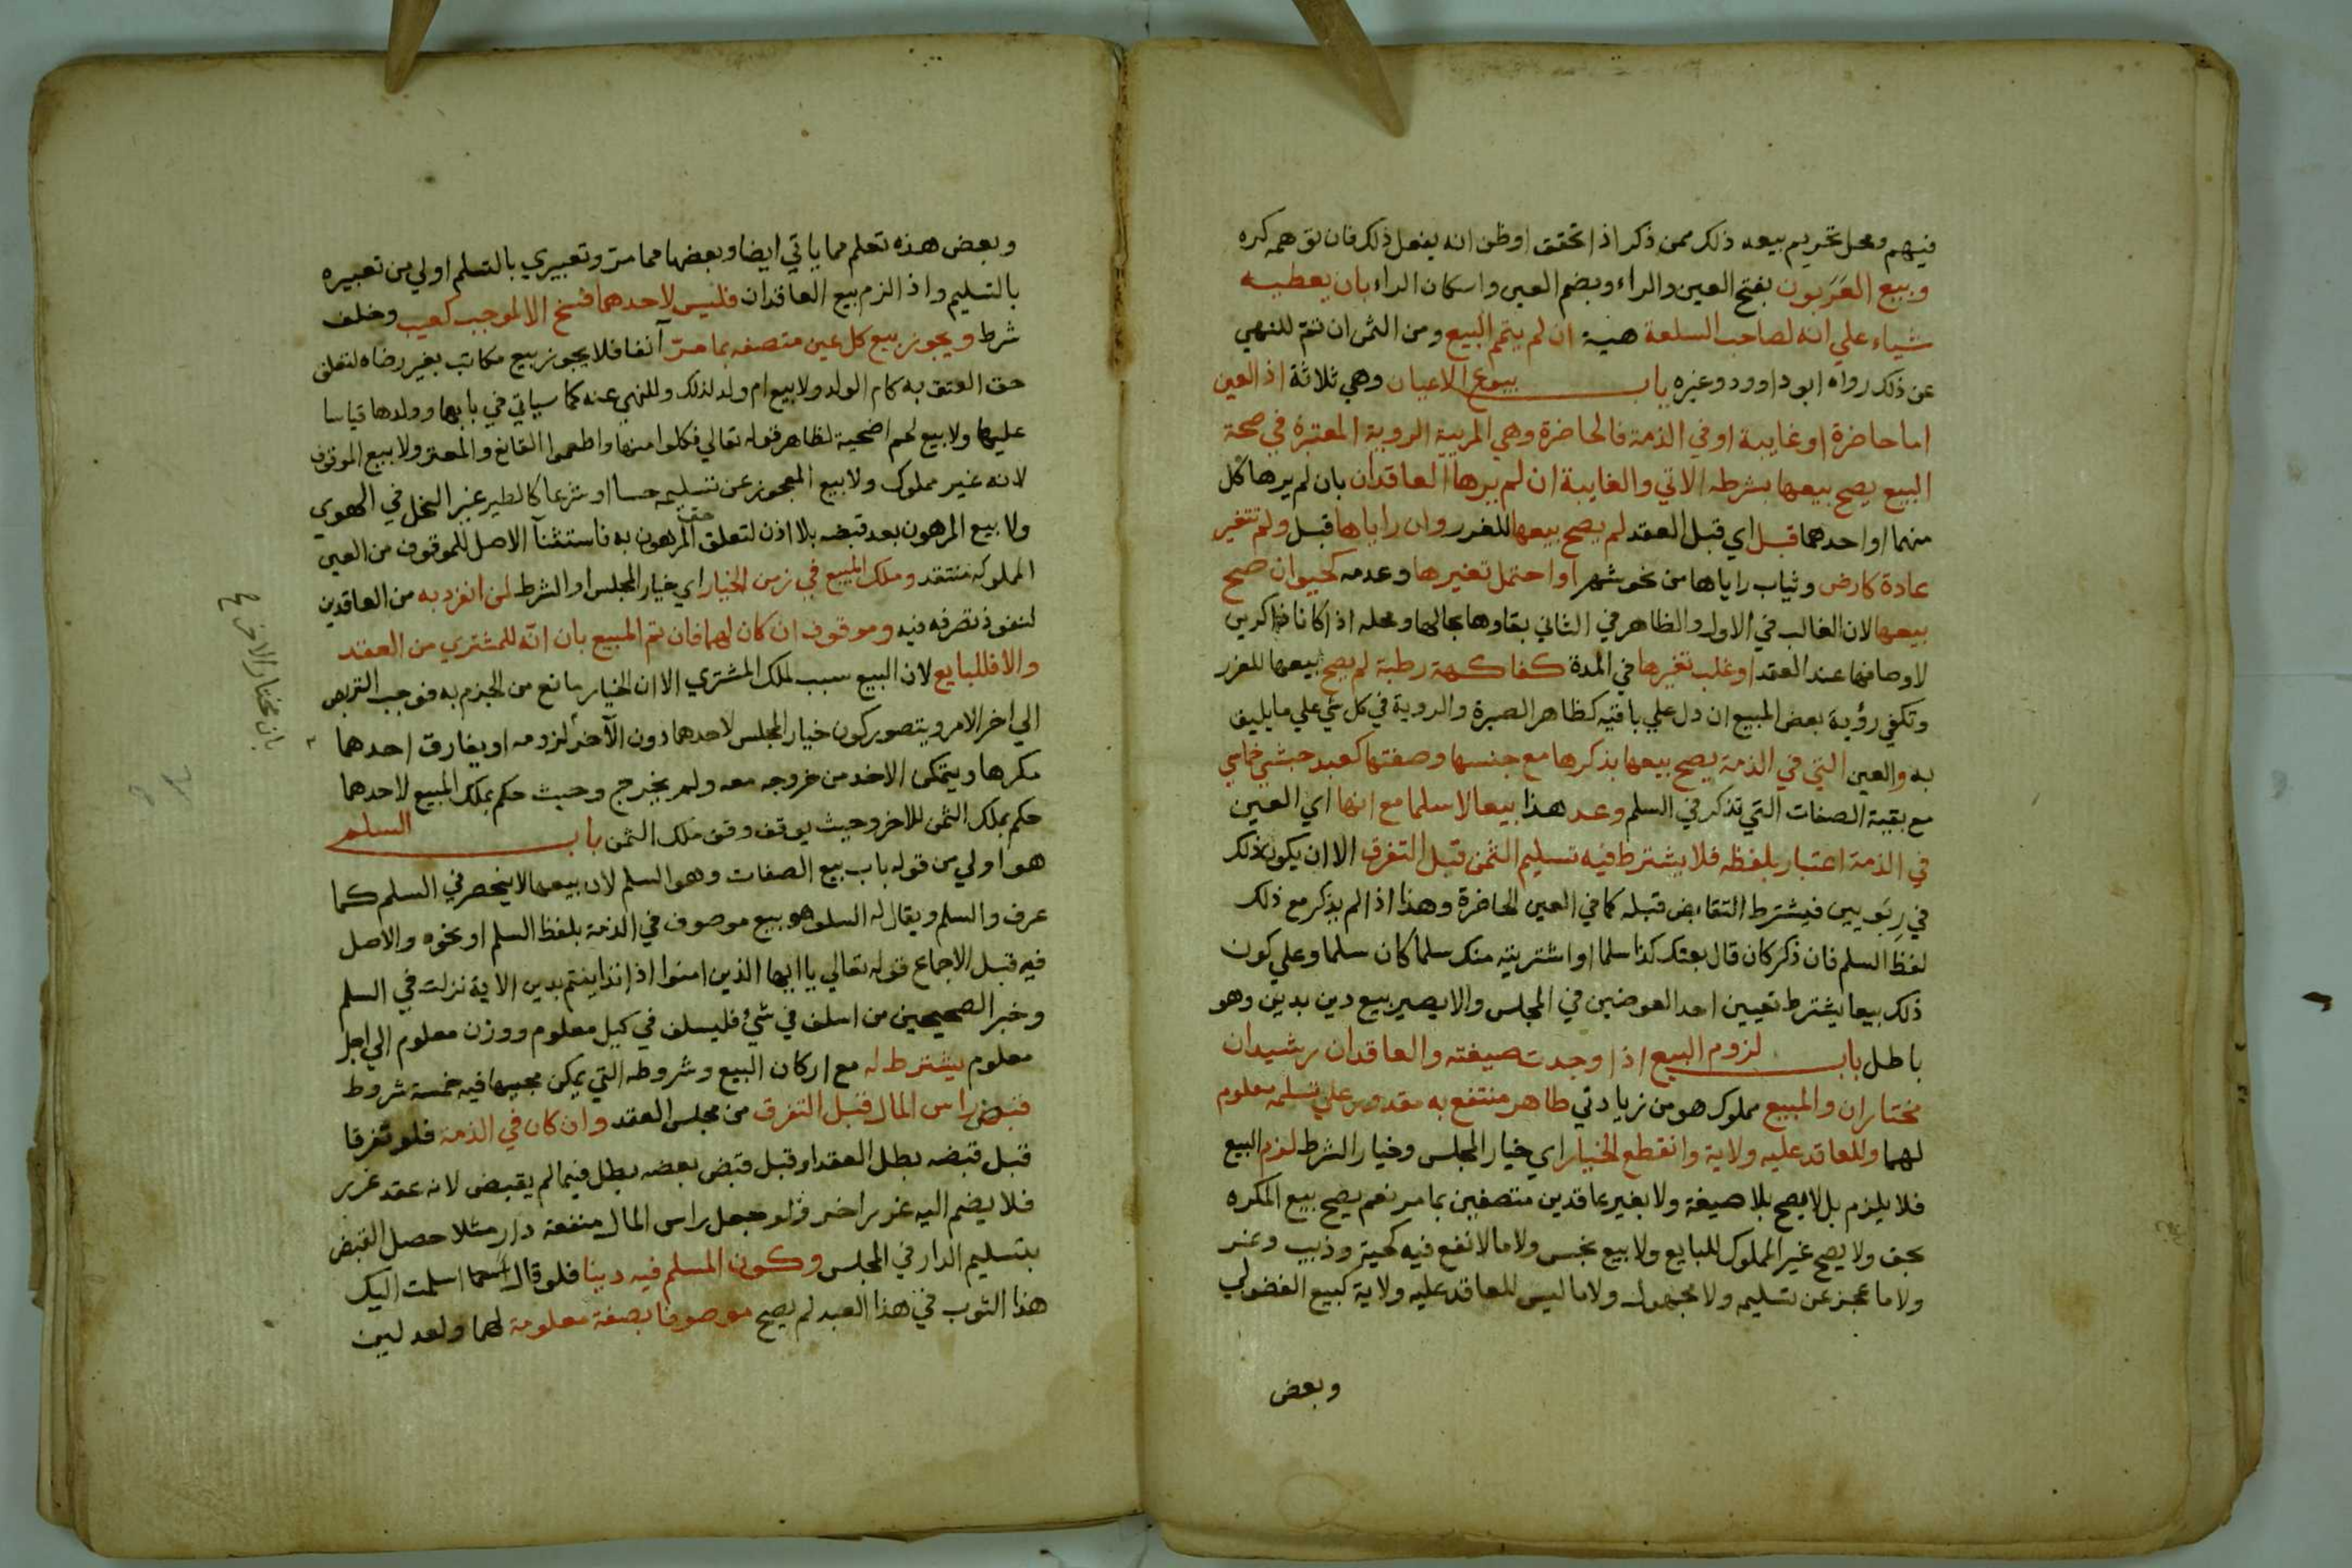 فيهم ومحل تحريم بيعه ذلك ممن ذكر اذا تحقق او ظن انه يفعل ذلك فان توهمه كره
وبيع العَرَبون بفتح العين والراء وبضم العين واسكان الراء بان يعطيه
شياء علي انه لصاحب السلعة هبة ان لم يتم البيع ومن الثمن ان تم للنهي
عن ذلك رواه ابو داوود وغيره باب بيوع الاعيان وهي ثلاثة اذ العين
اما حاضرة او غايبة او في الذمة فالحاضرة وهي المرييه الروية المعتبرة في صحة
البيع يصح بيعها بشرطه الاتي والغايبة ان لم يرها العاقدان بان لم يرها كل
منهما او احدهما قبل اي قبل العقد لم يصح بيعها للغرر وان راياها قبل ولم تتغير
عادة كارض وثياب راياها من نحو شهر او احتمل تغيرها وعدمه كحيوان صح
بيعها لان الغالب في الاول والظاهر في الثاني بقاوها بحالها ومحله اذا كانا ذاكرين
لاوصافها عند العقد او غلب تغيرها في المدة كفاكهة رطبة لم يصح بيعها للغرر
وتكفي رؤية بعض المبيع ان دل علي باقيه كظاهر الصبرة والروية في كل شي علي ما يليق
به والعين التي في الذمة يصح بيعها بذكرها مع جنسها وصفتها كعبد حبشي خماسي
مع بقية الصفات التي تذكر في السلم وعد هذا بيعا لا سلما مع انها اي العين
في الذمة اعتبار بلفظه فلا يشترط فيه تسليم الثمن قبل التفرق الا ان يكون ذلك
في رِبَويين فيشترط التقابض قبله كما في العين الحاضرة وهذا اذا لم يذكر مع ذلك
لفظ السلم فان ذكر كان قال بعتك كذا سلما او اشتريته منك سلما كان سلما وعلي كون
ذلك بيعا يشترط تعيين احد العوضين في المجلس والا يصير بيع دين بدين وهو
باطل باب لزوم البيع اذا وجدت صيغته والعاقدان رشيدان
مختاران والمبيع مملوك هو من زيادتي طاهر منتفع به مقدور علي تسلمه معلوم
لهما وللعاقد عليه ولاية وانقطع الخيار اي خيار المجلس وخيار الشرط لزم البيع
فلا يلزم بل لا يصح بلا صيغة ولا بغير عاقدين متصفين بما مر نعم يصح بيع المكره
بحق ولا يصح غير المملوك للبايع ولا بيع نجس ولا ما لا نفع فيه كحية وذيب وغر
ولا ما عجز عن تسليمه ولا مجهول ولا ما ليس للعاقد عليه ولاية كبيع الفضولي
وبعض
وبعض هذه تعلم مما ياتي ايضا وبعضها مما مر وتعبيري بالتسلم اولي من تعبيره
بالتسليم واذا لزم بيع العاقدان فليس لاحدهما فسخ الا لموجب كعيب وخلف
شرط ويجوز بيع كل عين متصفه بما مرّ آنفا فلا يجوز بيع مكاتب بغير رضاه لتعلق
حق العتق به كام الولد ولا بيع ام ولد لذلك وللنهي عنه كما سياتي في بابهما وولدها قياسا
عليها ولا بيع لحم اضحية لظاهر قوله تعالي فكلوا منها واطعموا القانع والمعتر ولا بيع الموقوف
لانه غير مملوك ولا بيع المعجوز عن تسليمه حسا او شرعا كالطير غير النحل في الهوي
ولا بيع المرهون بعد قبضه بلا اذن لتعلق حق المرهون به فاستثنآ الاصل للموقوف من العين
المملوكه منتقد وملك المبيع في زمن الخيار اي خيار المجلس او الشرط لمن انفرد به من العاقدين
لنفوذ تصرفه فيه وموقوف ان كان لهما فان تم المبيع بان انّه للمشتري من العقد
والا فللبايع لان البيع سبب لملك المشتري الا ان الخيار مانع من الجزم به فوجب التربص
الي اخر الامر ويتصور كون خيار المجلس لاحدهما دون الآخر لزومه او يفارق احدهما
مكرها ويتمكن الاخد من خروجه معه ولم يخرج وحيث حكم بملك المبيع لاحدهما
حكم بملك الثمن للاخر وحيث يوقف وقف ملك الثمن باب السلم
هو اولي من قوله باب بيع الصفات وهو السلم لان بيعها لا ينحصر في السلم كما
عرف والسلم ويقال له السلف هو بيع موصوف في الذمة بلفظ السلم او نحوه والاصل
فيه قبل الاجماع قوله تعالي يا ايها الذين امنوا اذا تداينتم بدين الاية نزلت في السلم
وخبر الصحيحين من اسلف في شيء فليسلف في كيل معلوم ووزن معلوم الي اجل
معلوم يشترط له مع اركان البيع وشروطه التي يمكن مجيها فيه خمسة شروط
قبض راس المال قبل التفرق من مجلس العقد وان كان في الذمة فلو تفرقا
قبل قبضه بطل العقد او قبل قبض بعضه بطل فيما لم يقبض لانه عقد غرر
فلا يضم اليه غرر اخر فلو جعل راس المال منفعة دار مثلا حصل القبض
بتسليم الدار في المجلس وكون المسلم فيه دينا فلو قال اسلمت اليك
هذا الثوب في هذا العبد لم يصح موصوفا بصفة معلومة لهما ولعدلين
بان مختار الاخر